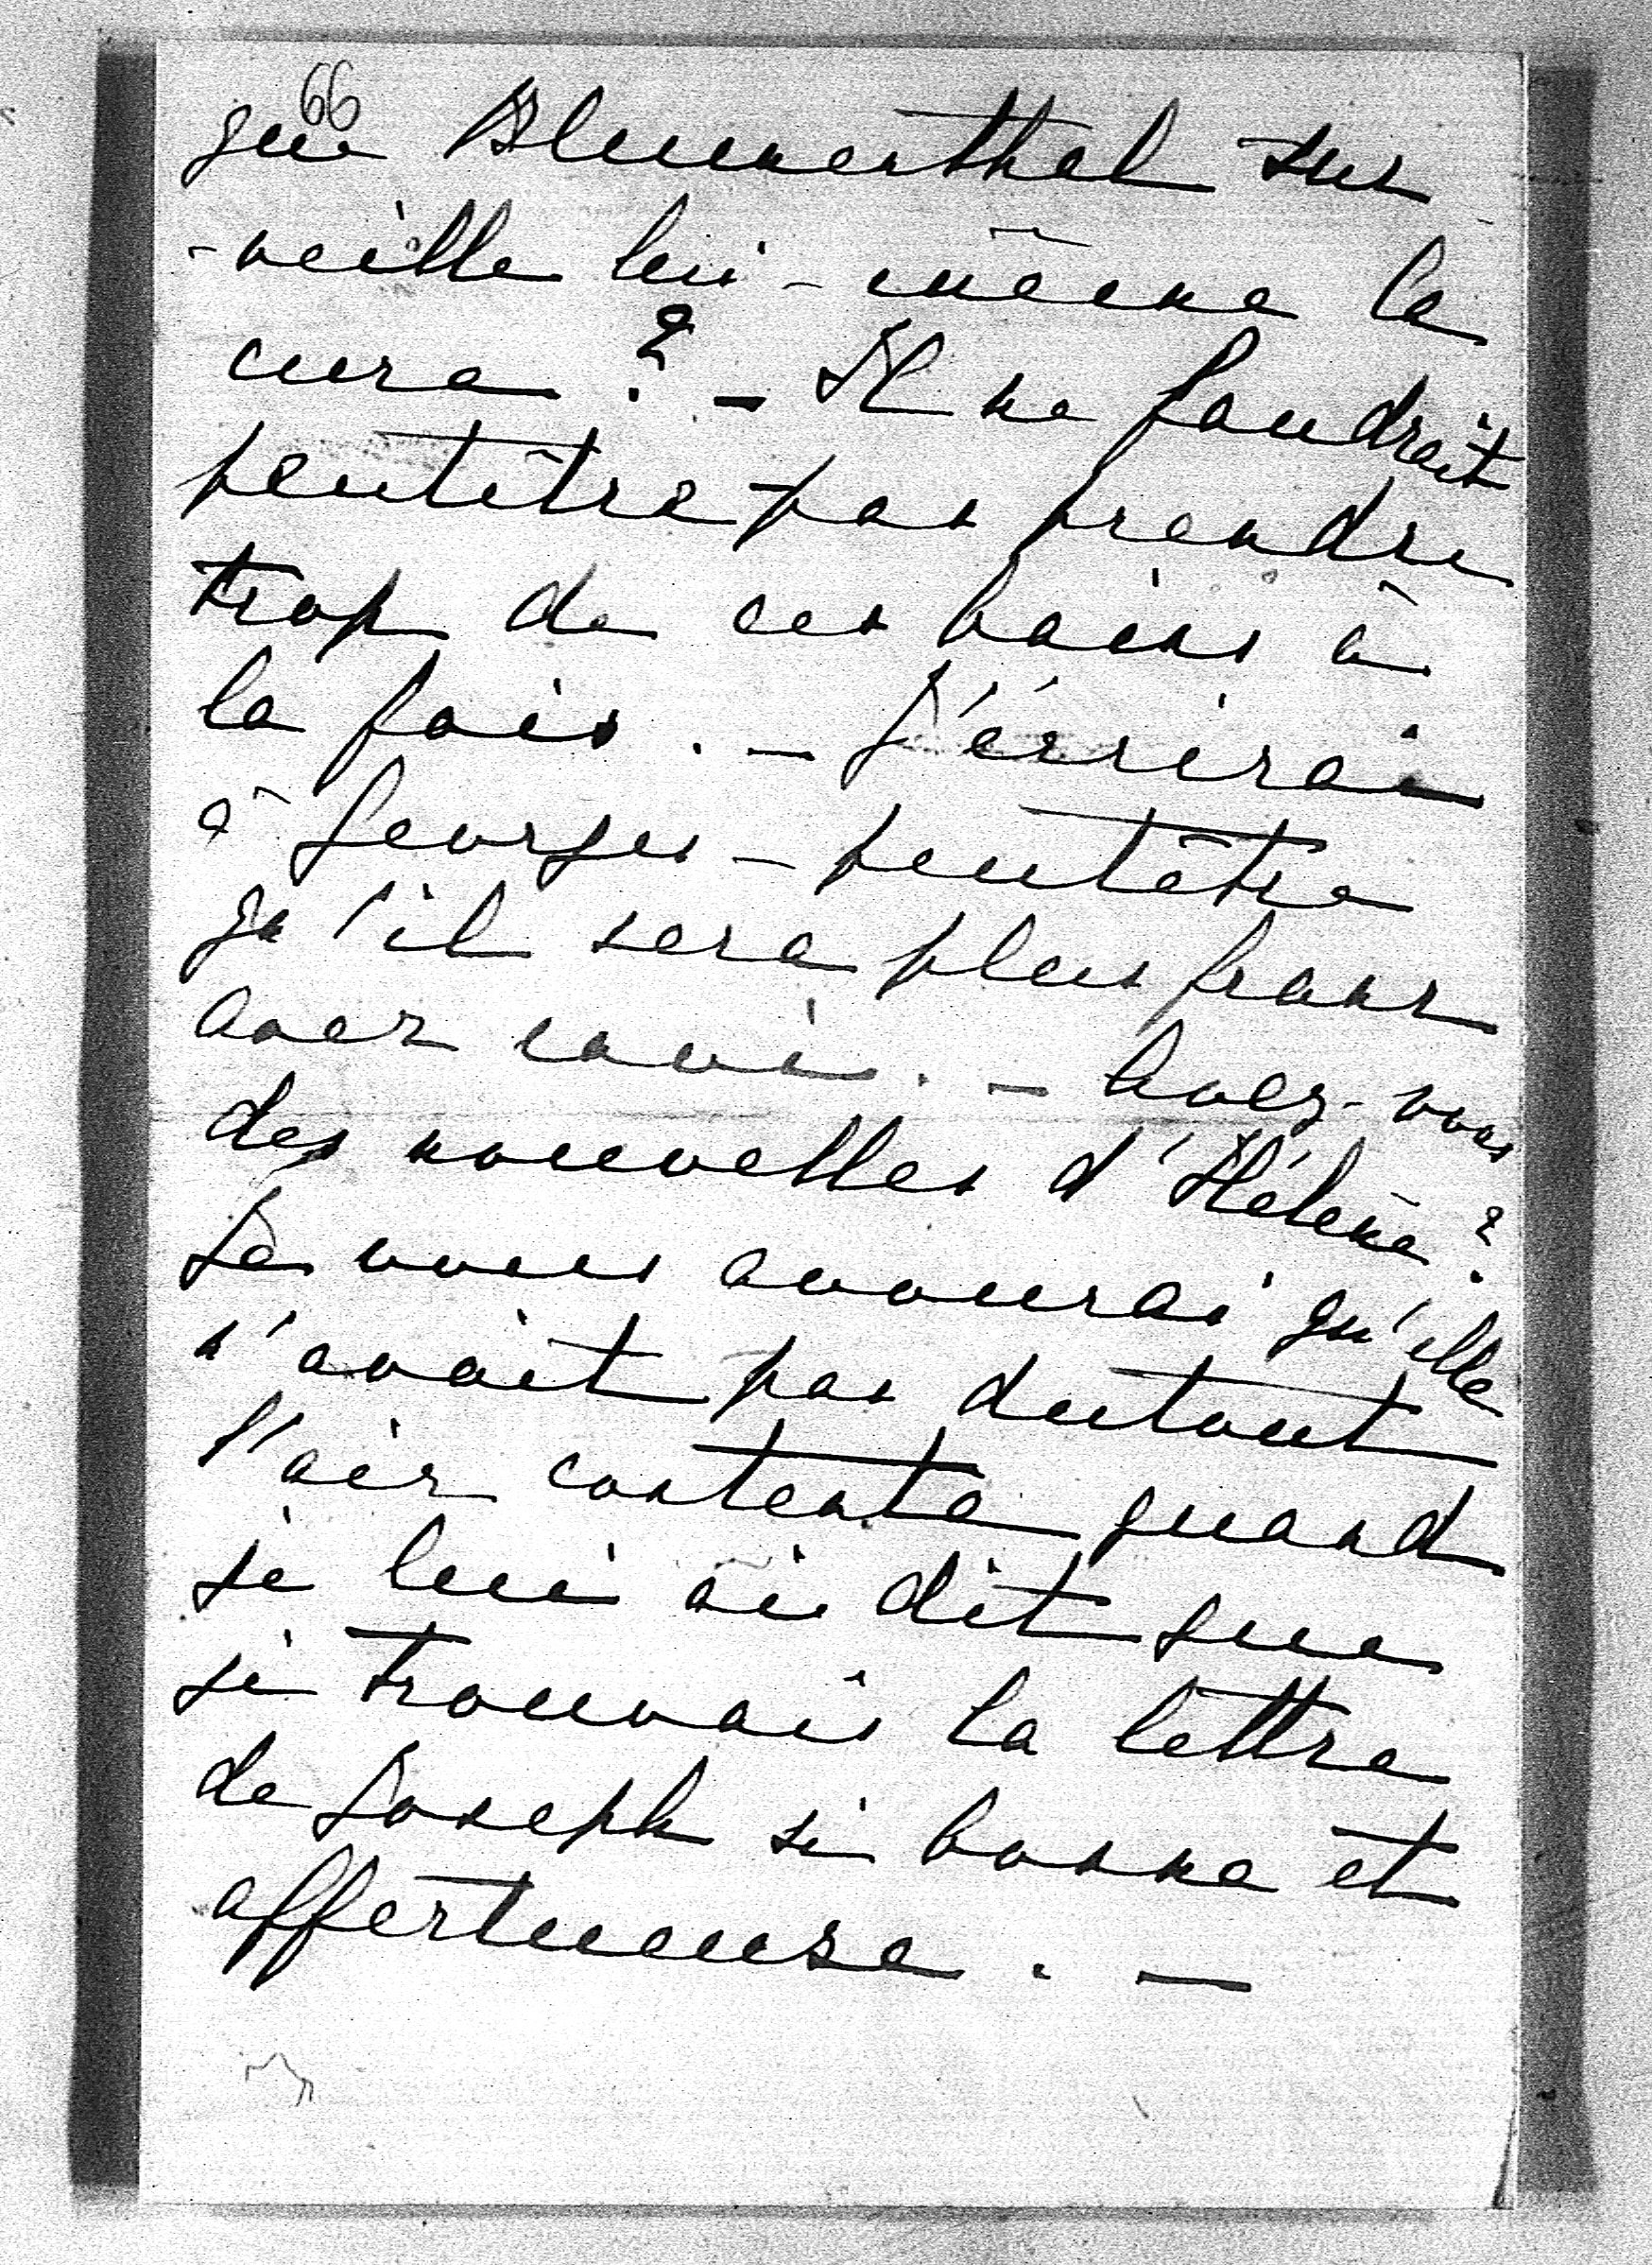 66
que Blumenthal sur
-veille lui-même la
cure ? – Il ne faudrait
peutêtre pas prendre
trop de ces bains à
la fois. – J'écrirai
à Georges – peutêtre
qu'il sera plus franc
avec moi. – Avez-vous
des nouvelles d'Hélène ?
Je vous avourai qu'elle
n'avait pas dutout
l'air contente quand
je lui ai dit que
je trouvais la lettre
de Joseph si bonne et
affectueuse. –